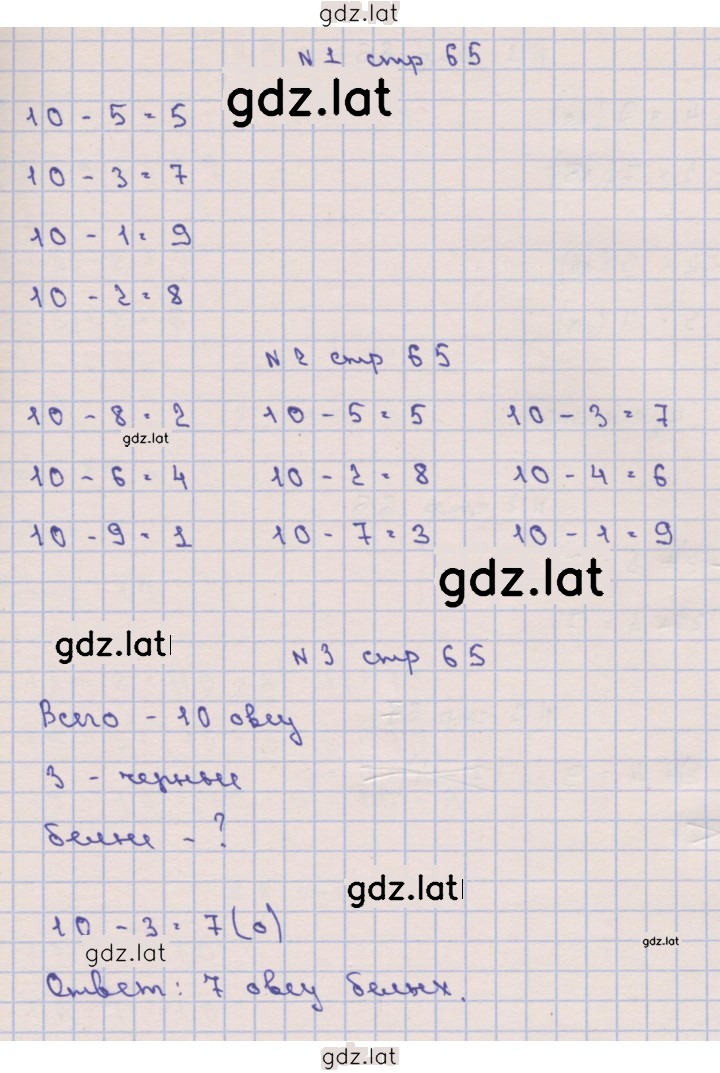 gdz.lat
N 1 стр 65
gdz.lat
10 - 5 = 5
10 - 3 = 7
10 - 1 = 9
10 - 2 = 8
N 2 стр 65
10 - 8 = 2 10 - 5 = 5 10 - 3 = 7
gdz.lat
10 - 6 = 4 10 - 2 = 8 10 - 4 = 6
10 - 9 = 1 10 - 7 = 3 10 - 1 = 9
gdz.lat
gdz.lat
N 3 стр 65
Всего - 10 овец
3 - черные
белые - ?
gdz.lat
10 - 3 = 7 (о)
gdz.lat
gdz.lat
Ответ: 7 овец белых.
gdz.lat